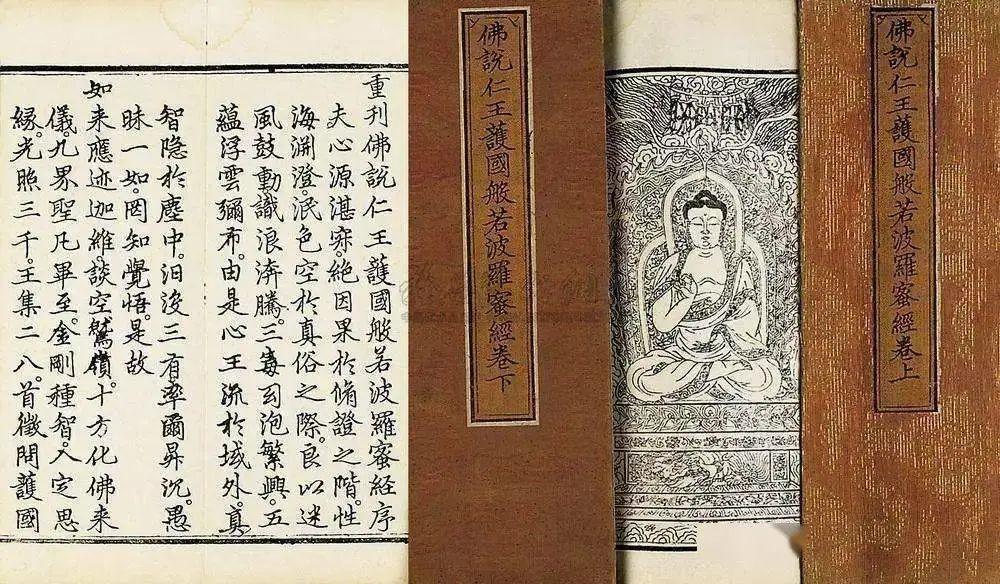 佛説仁王護國般若波羅蜜經卷上
佛説仁王護國般若波羅蜜經卷下
重刊佛説仁王護國般若波羅蜜經序
夫心源湛寂。絶因果於脩證之階。性
海淵澄。泯色空於真俗之際。良以迷
風鼓動。識浪渀騰。三毒幻泡繁興。五
蘊浮雲彌布。由是心王流於域外。真
智隐於塵中。汩没三有。率爾昇沉。愚
昧一如。罔知覺悟。是故
如来應迹迦維。談空鷲嶺。十方化佛。来
儀九界聖凡畢至。金剛種智。入定思
縁。光照三千。王集二八。首徵問護國